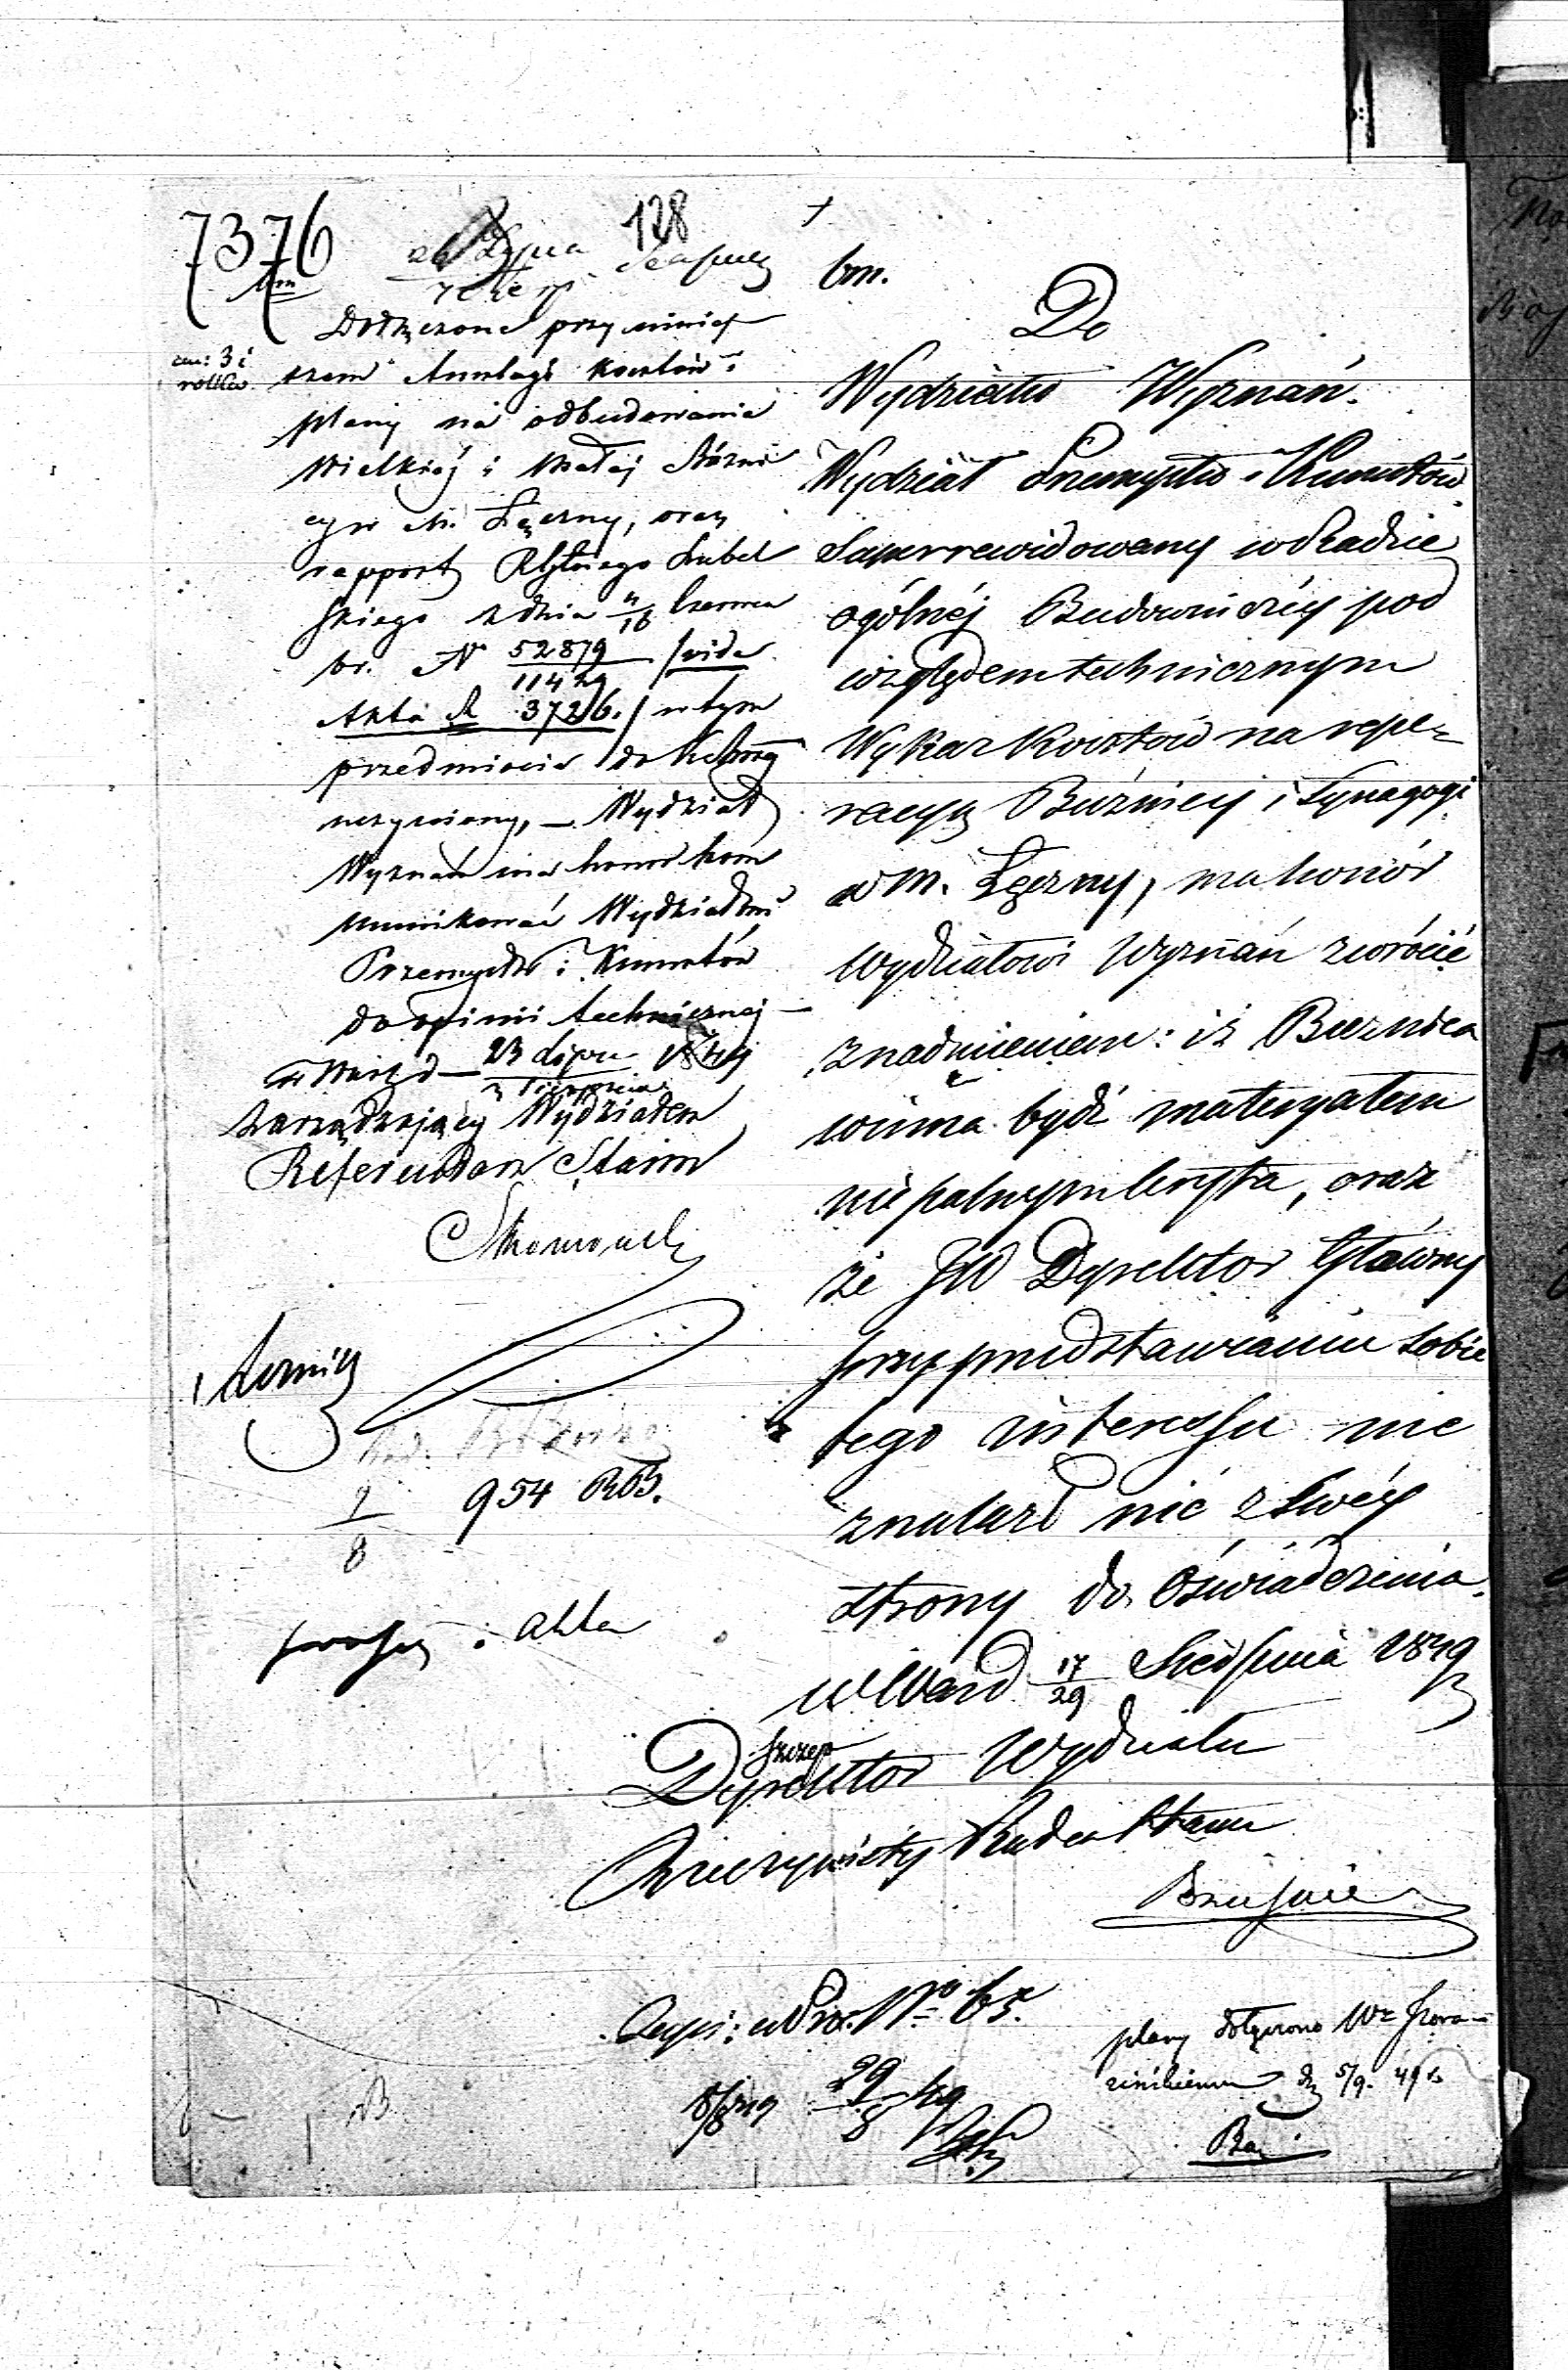 7376
128
Dołączone przy niniej
szem Anszlagi kosztów i
plany na odbudowanie
Wielkiéj i Małéj Bóżni
cy w M. Łęczny, oraz
rapport Rządu Gubel
skiego z dnia 4/16 Czerwca
br. N 52879/11429 /vide
Akta N 3726./ w tym
przedmiocie do Kom̃yi
uczyniony, — Wydział
Wyznań ma honor kom
munikować Wydziałowi
Przemysłu i Kunsztów
do opinii technicznej —
w Warsz d — 23 Lipca
Sierpnia
Zarządzający Wydziałem
Referendarz Stanu
954 RBS.
2/8
i akta
bm.
Do
Wydziału Wyznań.
Wydział Przemysłu i Kunsztów
Superrewidowany w Radzie
ogólnéj Budowniczéj pod
względem technicznym
Wykaz Kosztów na repe-
racyę Bużnicy i Synagogi
w M. Łęczny, ma honór
Wydziałowi Wyznań zwrócić
z nadmieniem: iż Buznica
winna bydź materyałem
niepalnym kryta, oraz
że JW Dyrektor Główny
przy przedstawianiu sobie
tego interessu nie
znalazł nic z swéy
strony do oświadczenia.
w Warsz d. 17/29 Sierpnia 1849
Dyrektor Wydziału
Rzeczywisty Radca Stanu
plany dołączono Wu
5/9. 49 r.
29/8 49